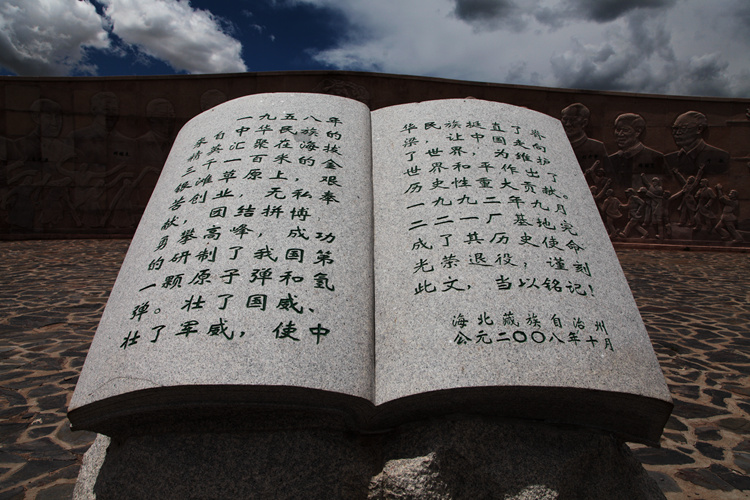 一九五八年
来自中华民族的
精英汇聚在海拔
三千一百米的金
银滩草原上,艰
苦创业,无私奉
献,团结拼博,
勇攀高峰,成功
的研制了我国第
一颗原子弹和氢
弹。壮了国威、
壮了军威,使中
华民族挺直了脊
梁,让中国走向
了世界,为维护
世界和平作出了
历史性重大贡献。
一九九二年九月
二二一厂基地完
成了其历史使命
光荣退役,谨刻
此文,当以铭记!
海北藏族自治州
公元二〇〇八年十月